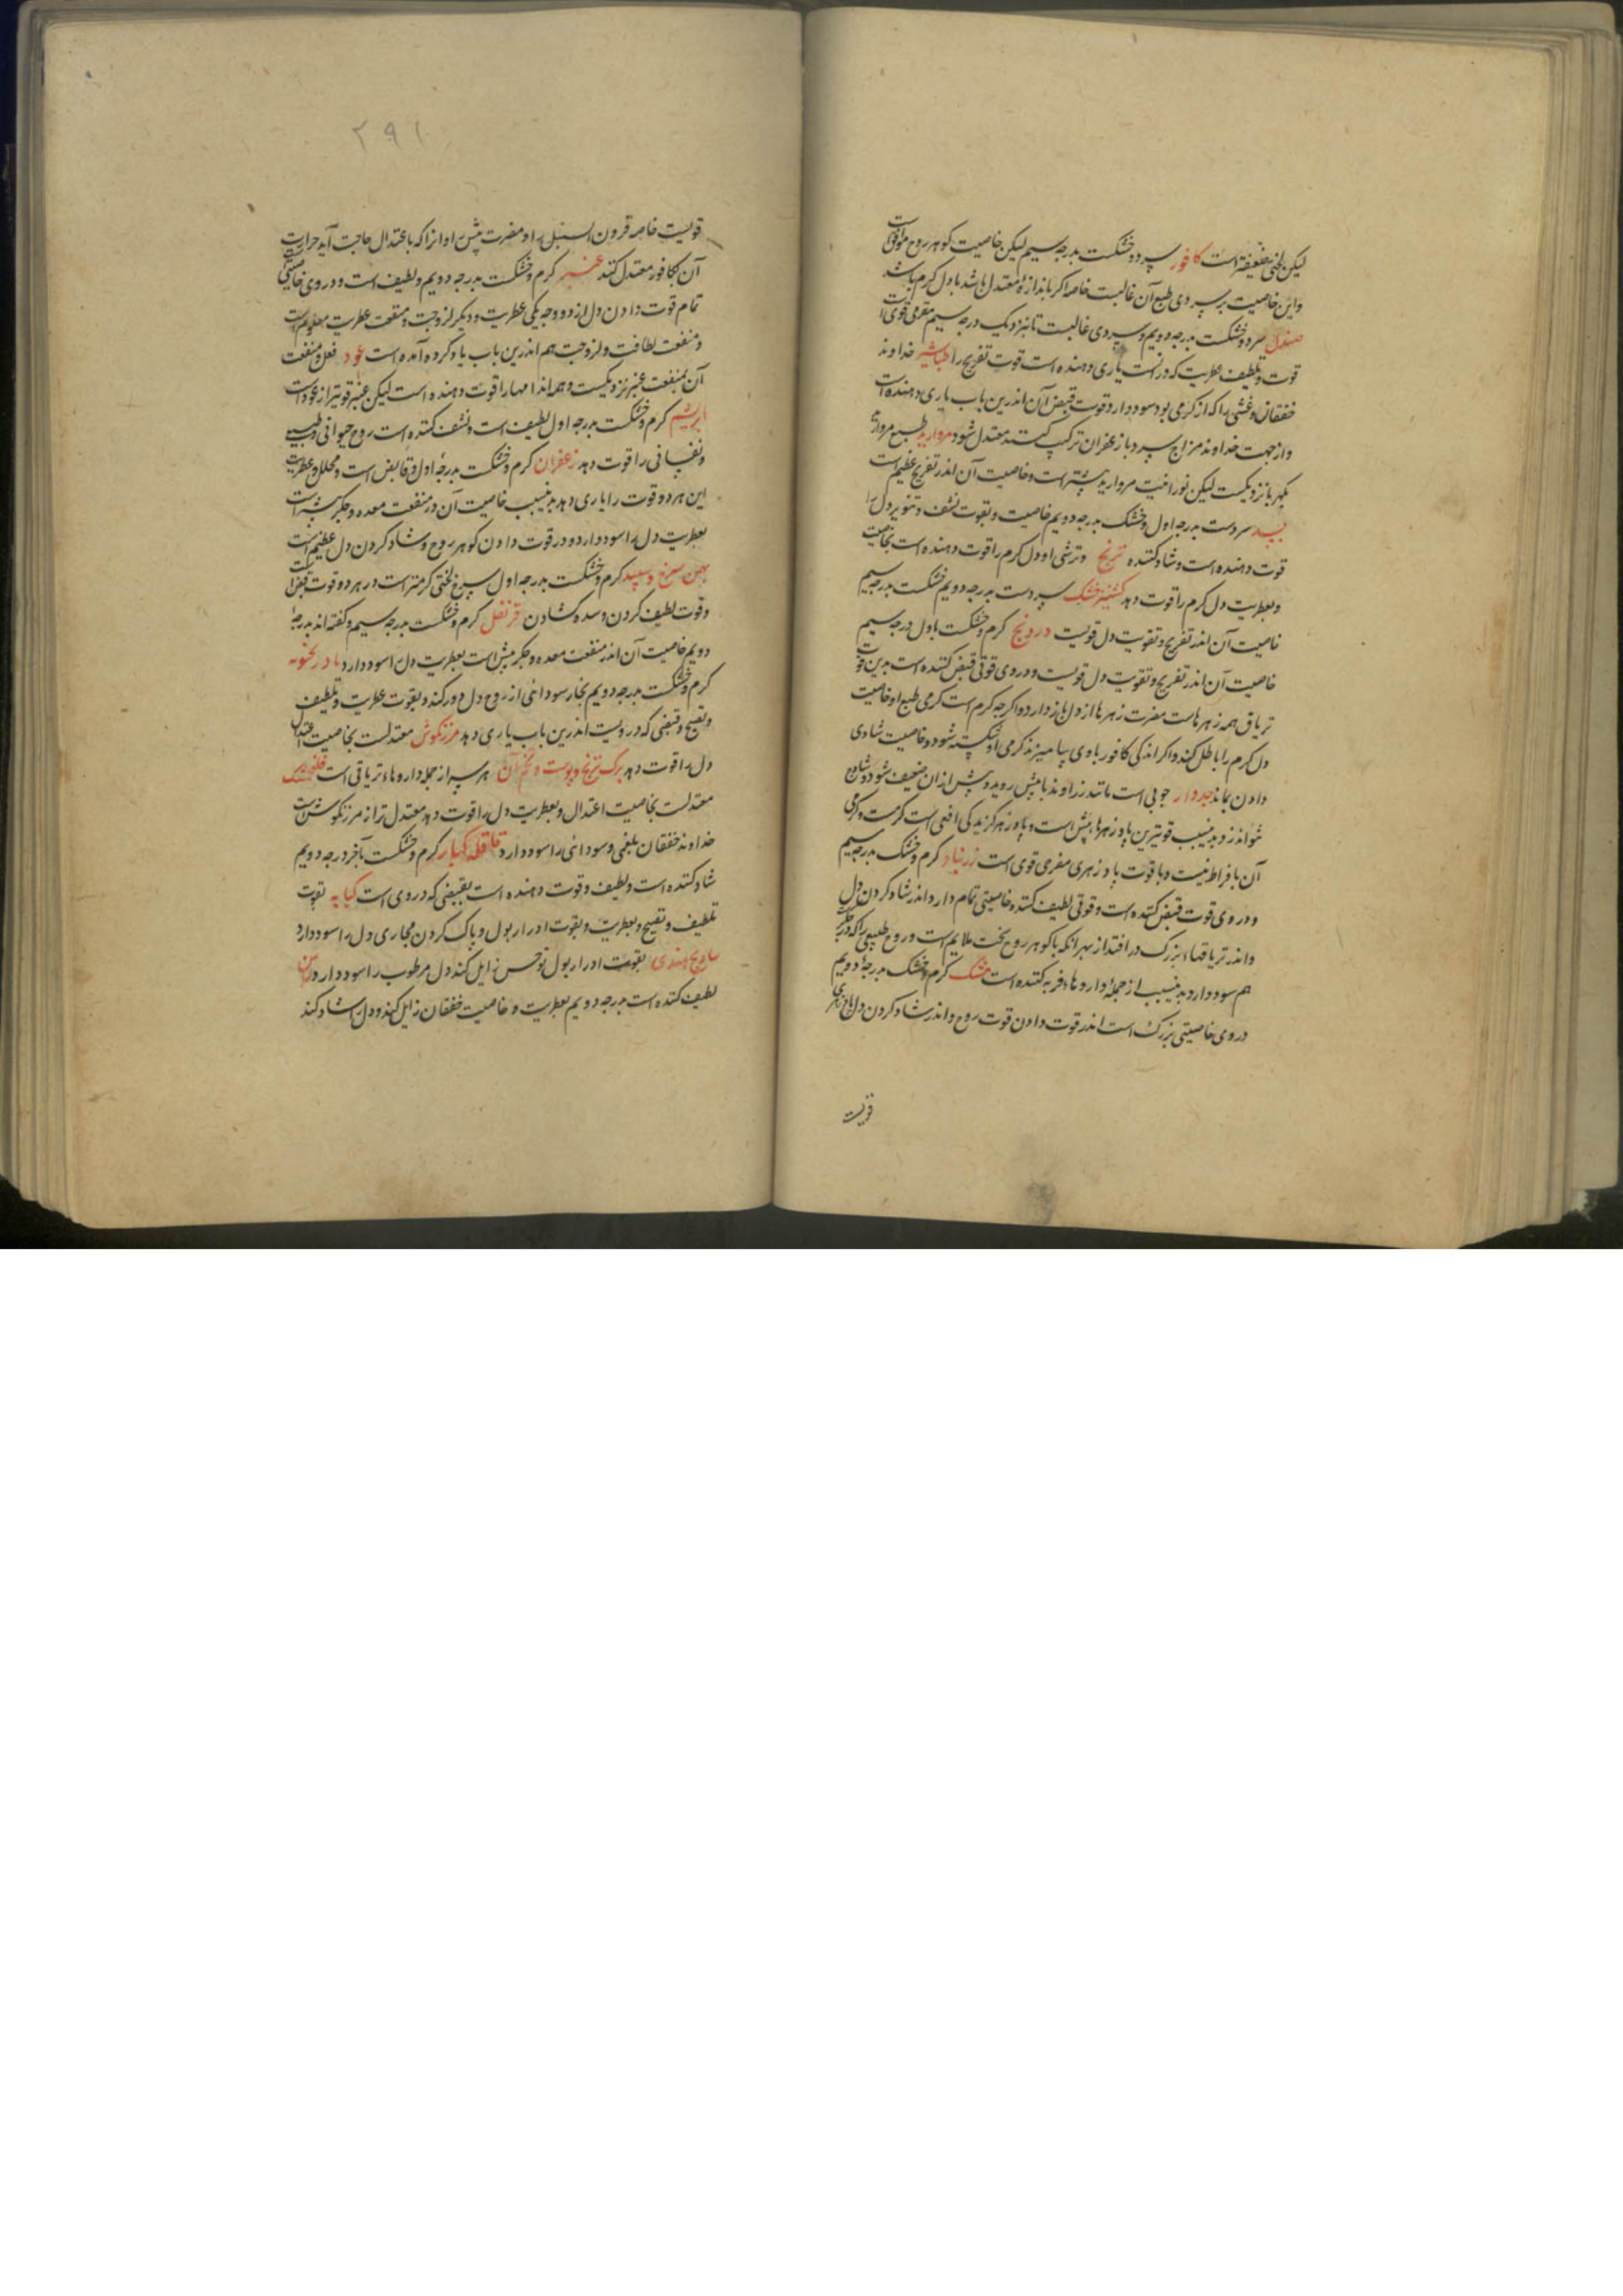 لیکن لختی ضعیفتر است کافور سرد و خشکست بدرجه سیم لیکن خاصیت کوهر روح موافق است
واین خاصیت بر سردی طبع آن غالبست خاصه اکر باندازهٔ معتدل باشد یا دل کرم باشد
صندل سرد و خشکست بدرجه دویم و سردی غالبست تا بنزدیک درجه سیم مفرحی قوی است
قوت و تلطیف عطریت که در آنست یاری دهنده است قوت تفریح را طباشیر خداوند
خفقان و غشی را که از کرمی بود سود دارد و قوت قبض آن اندرین باب یاری دهنده است
واز جهت خداوند مزاج سرد با زعفران ترکیب کنند معتدل شود مروارید طبع مروارید
بکهربا نزدیکست لیکن نورانیت مروارید بیشتر است و خاصیت آن اندر تفریح عظیم است
بسد سردست بدرجه اول و خشک بدرجه دویم خاصیت و بقوت نشف و تنویر دل را
قوت دهنده است و شاد کننده ترنج و ترشی او دل کرم را قوت دهنده است بخاصیت
و بعطریت دل کرم را قوت دهد کشنیز خشک سردست بدرجه دویم خشکست بدرجه سیم
خاصیت آن اندر تفریح و تقویت دل قویست درونج کرم و خشکست باول درجه سیم
خاصیت آن اندر تفریح و تقویت دل قویست و در وی قوتی قبض کننده است بدین قوت
تریاق همه زهرهاست مضرت زهرها از دل باز دارد و اکرچه کرم است کرمی طبع او خاصیت
دل کرم را باطل کند و اکر اندکی کافور با وی بیامیزند کرمی او شکسته شود و خاصیت شادی
دادن بماند جدوار چوبی است مانند زراوند با بیش روید و بیش از آن ضعیف شود و شاخ
نتواند زد بدینسبب قویترین پادزهرها بیش است و پادزهر کزیدکی افعی است کرمست و کرمی
آن بافراط نیست و با قوت پادزهری مفرحی قوی است زرنباد کرم و خشک بدرجه سیم
و در وی قوت قبض کننده است و قوتی لطیف کننده و خاصیتی تمام دارد اندر شاد کردن دل
واندر تریاقها بزرک در افتد از بهر انکه با کوهر روح سخت ملایم است و روح طبیعی را که در جکر
هم سود دارد بدینسبب از جملهٔ داروهاء فربه کننده است مشک کرم و خشک بدرجهٔ دویم
در وی خاصیتی بزرک است اندر قوت دادن قوت روح و اندر شاد کردن دل پادزهری
قویست
۲۹۱
قویست خاصه قرون السنبل را و مضرت بیش را و انرا که باعتدال حاجت آید حرارت
آن بکافور معتدل کنند عنبر کرم و خشکست بدرجه دویم و لطیف است و در وی خاصیتی
تمام قوت دادن دل از دو وجه یکی عطریت و دیکر لزوجت و منفعت عطریت معلوم است
و منفعت لطافت و لزوجت هم اندرین باب یاد کرده آمده است عود فعل و منفعت
آن بمنفعت عنبر نزدیکست و همه اندامها را قوت دهنده است لیکن عنبر قویتر از عود است
ابریشم کرم و خشکست بدرجه اول لطیف است و نشف کننده است روح حیوانی و طبیعی
و نفسانی را قوت دهد زعفران کرم و خشکست بدرجهٔ اول و قابض است و محلل و عطریت
این هر دو قوت را یاری دهد بدینسبب خاصیت آن در منفعت معده و جکر بیشتر است
بعطریت دل را سود دارد و در قوت دادن کوهر روح و شاد کردن دل عظیم است
بهمن سرخ و سپید کرم و خشکست بدرجه اول سرخ لختی کرمتر است در هر دو قوت قبض است
و قوت لطیف کردن و سده کشادن قرنفل کرم و خشکست بدرجه سیم و کفته اند بدرجهٔ
دویم خاصیت آن اندر منفعت معده و جکر بیش است بعطریت دل را سود دارد بادرنجبویه
کرم و خشکست بدرجه دویم بخار سودائی از روح دل دور کند و بقوت عطریت و تلطیف
و تفتیح و قبضی که در ویست اندرین باب یاری دهد مرزنکوش معتدلست بخاصیت اعتدال
دل را قوت دهد برک ترنج و پوست و تخم آن هر سه از جمله داروهاء تریاقی است فلنجمشک
معتدلست بخاصیت اعتدال و بعطریت دل را قوت دهد معتدل تر از مرزنکوش است
خداوند خفقان بلغمی و سودائی را سود دارد قاقله کبار کرم و خشکست بآخر درجه دویم
شاد کننده است و لطیف و قوت دهنده است بقبضی که در وی است کبابه بقوت
تلطیف و تفتیح و بعطریت و بقوت ادرار بول و پاک کردن مجاری دل را سود دارد
ساذج هندی بقوت ادرار بول توحش زایل کند دل مرطوب را سود دارد
لطیف کننده است بدرجه دویم بعطریت و خاصیت خفقان زایل کند و دل را شاد کند